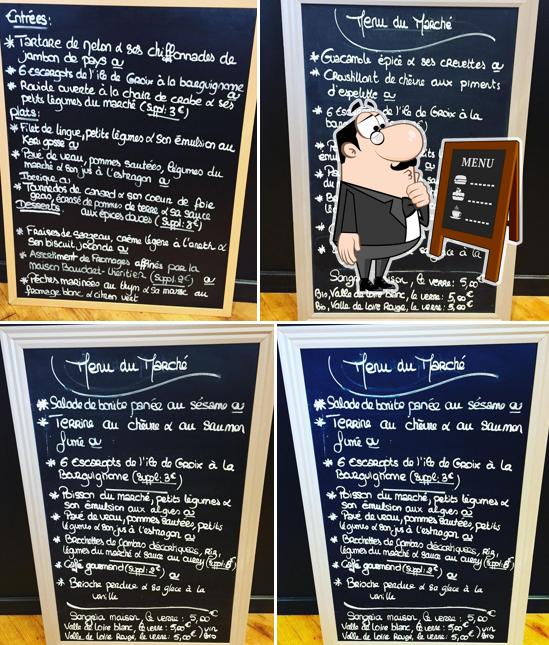 Entrées:
* Tartare de melon & ses chiffonnades de
jambon de pays ou
* 6 escargots de l'île de Groix à la bourguignonne
ou
* Raviole ouverte à la chair de crabe & ses
petits légumes du marché (Suppl: 3€)
plats:
* Filet de lingue, petits légumes & son émulsion au
Kari gosse ou
* Pavé de veau, pommes sautées, légumes du
marché & son jus à l'estragon ou
* Tournedos de canard & son coeur de foie
gras, écrasé de pommes de terre & sa sauce
aux épices douces (Suppl: 8€)
Desserts:
* Fraises de , crème légère à l'aneth &
son biscuit joconde ou
* Assortiment de fromages affinés par la
maison (Suppl: 2€) ou
* Pêches marinées au thym & sa mousse au
fromage blanc & citron vert
Menu du Marché
* Guacamole épicé & ses crevettes ou
* Croustillant de chèvre aux piments
d'espelette ou
* 6 de l'île de Groix à la
MENU
Sangria maison, le verre: 5,00
Bio, Valle de loire blanc, le verre: 5,00€
Bio, Valle de Loire Rouge, le verre: 5,00€
Menu du Marché
* Salade de bonite panée au sésame ou
* Terrine au chèvre & au saumon
fumé ou
* 6 Escargots de l'île de Groix à la
Bourguignonne (Suppl: 3€)
* Poisson du marché, petits légumes &
son émulsion aux algues ou
* Pavé de veau, pommes sautées, petits
légumes & son jus à l'estragon ou
* Brochettes de Gambas décortiquées, Riz,
légumes du marché & sauce au curry (Suppl: 8€)
* Café gourmand (Suppl: 2€) ou
* Brioche perdue & sa glace à la
vanille
Sangria maison, le verre: 5,00€
Valle de loire blanc, le verre: 5,00€ } vin
Valle de Loire Rouge, le verre: 5,00€ } Bio
Menu du Marché
* Salade de bonite panée au sésame ou
* Terrine au chèvre & au saumon
fumé ou
* 6 Escargots de l'île de Groix à la
Bourguignonne (Suppl: 3€)
* Poisson du marché, petits légumes &
son émulsion aux algues ou
* Pavé de veau, pommes sautées, petits
légumes & son jus à l'estragon ou
* Brochettes de Gambas décortiquées, Riz,
légumes du marché & sauce au curry (Suppl: 8€)
* Café gourmand (Suppl: 2€) ou
* Brioche perdue & sa glace à la
vanille
Sangria maison, le verre: 5,00€
Valle de loire blanc, le verre: 5,00€ } vin
Valle de Loire Rouge, le verre: 5,00€ } Bio